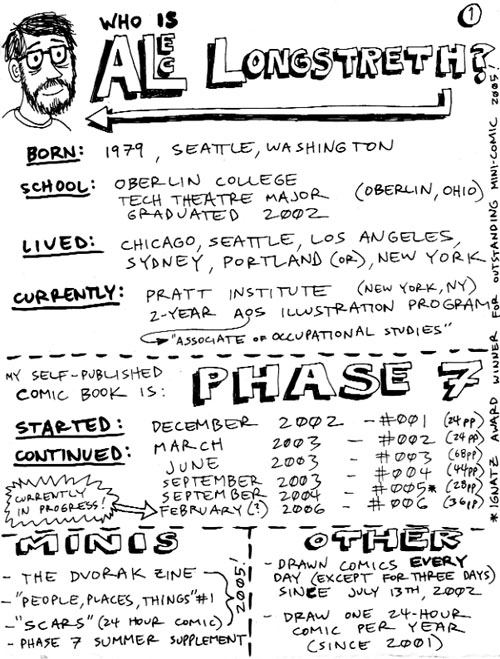 1
WHO IS
ALEC LONGSTRETH?
BORN: 1979, SEATTLE, WASHINGTON
SCHOOL: OBERLIN COLLEGE (OBERLIN, OHIO)
TECH THEATRE MAJOR
GRADUATED 2002
LIVED: CHICAGO, SEATTLE, LOS ANGELES,
SYDNEY, PORTLAND (OR), NEW YORK
CURRENTLY: PRATT INSTITUTE (NEW YORK, NY)
2-YEAR AOS ILLUSTRATION PROGRAM
"ASSOCIATE OF OCCUPATIONAL STUDIES"
MY SELF-PUBLISHED
COMIC BOOK IS: PHASE 7
STARTED: DECEMBER 2002 - #001 (24pp)
CONTINUED: MARCH 2003 - #002 (24pp)
JUNE 2003 - #003 (68pp)
SEPTEMBER 2003 - #004 (44pp)
SEPTEMBER 2004 - #005* (28pp)
FEBRUARY (?) 2006 - #006 (36pp)
CURRENTLY
IN PROGRESS!
* IGNATZ AWARD WINNER FOR OUTSTANDING MINI-COMIC 2005!
MINIS
- THE DVORAK ZINE
- "PEOPLE, PLACES, THINGS" #1
- "SCARS" (24 HOUR COMIC)
- PHASE 7 SUMMER SUPPLEMENT
2005!
OTHER
- DRAWN COMICS EVERY
DAY (EXCEPT FOR THREE DAYS)
SINCE JULY 13TH, 2002
- DRAW ONE 24-HOUR
COMIC PER YEAR
(SINCE 2001)